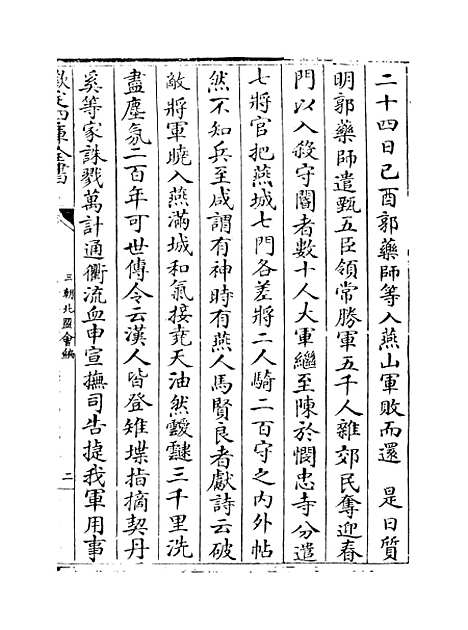 二十四日己酉郭藥師等入燕山軍敗而還　是日質
明郭藥師遣甄五臣領常勝軍五千人雜郊民奪迎春
門以入殺守閽者數十人大軍繼至陳於憫忠寺分遣
七將官把燕城七門各差將二人騎二百守之内外帖
然不知兵至咸謂有神時有燕人馬賢良者獻詩云破
敵將軍曉入燕滿城和氣接堯天油然靉靆三千里洗
盡塵氛二百年可世傳令云漢人皆登雉堞指摘契丹
奚等家誅戮萬計通衢流血申宣撫司告捷我軍用事
欽定四庫全書
三朝北盟會編
二